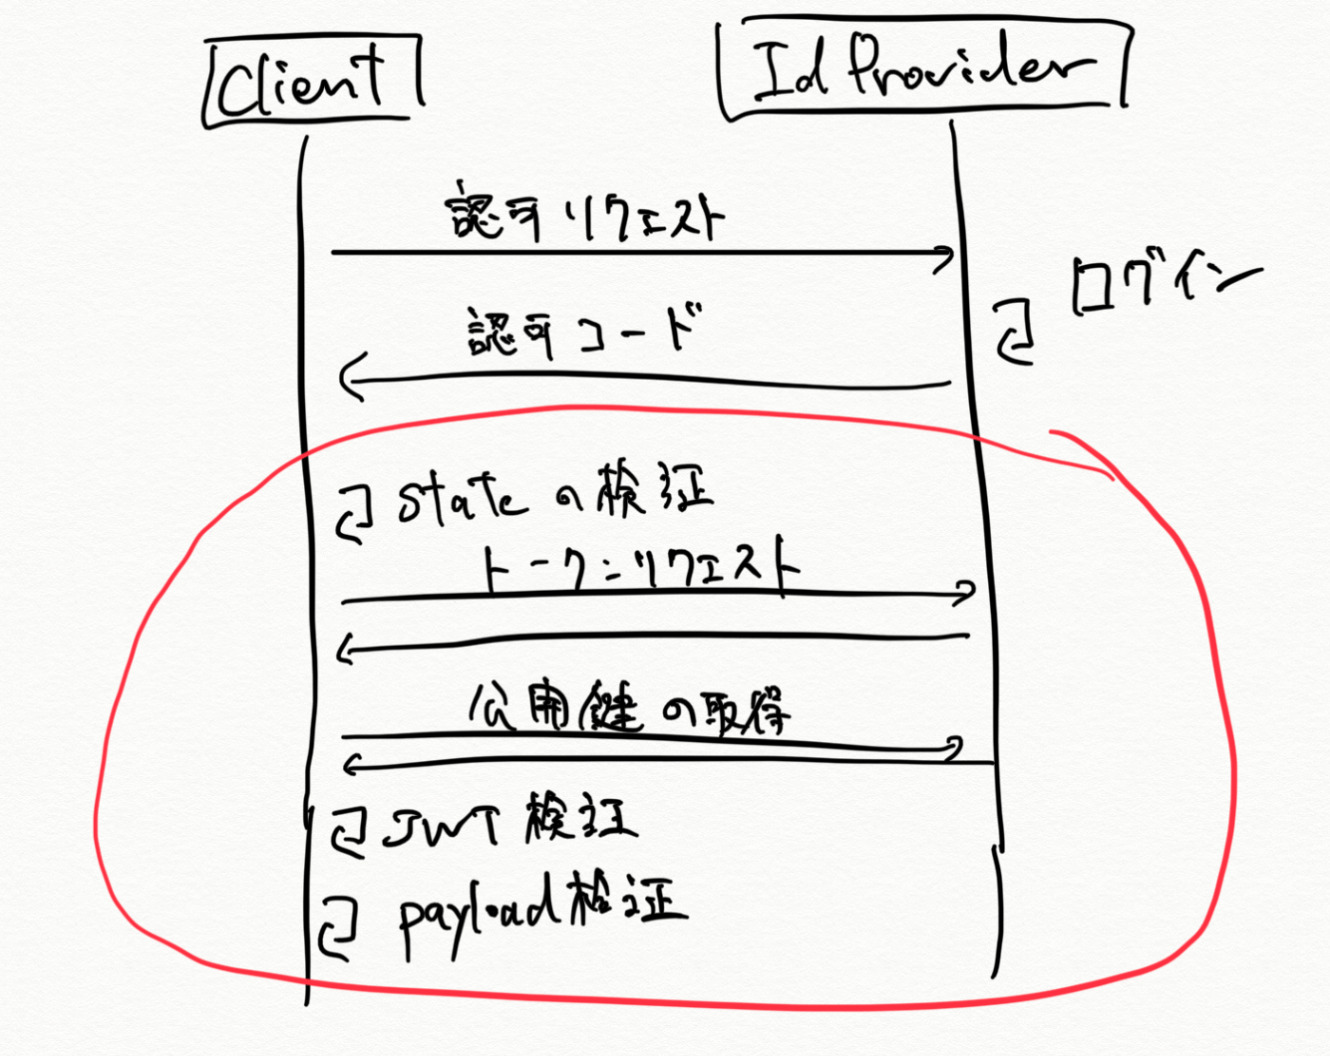 Client
Id Provider
認可リクエスト
ログイン
認可コード
stateの検証
トークンリクエスト
公開鍵の取得
JWT検証
payload検証